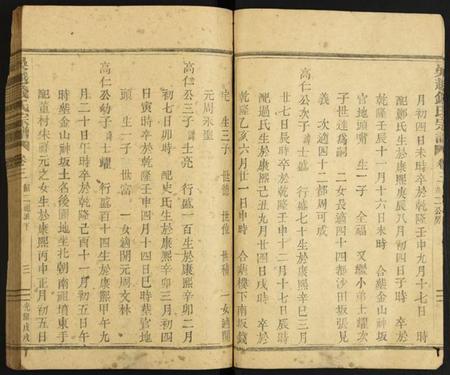 月初四日未時卒於乾隆壬申九月十七日 時
配鄭氏生於康熙庚辰八月初四日子時 卒於
乾隆壬辰十一月十六日未時 合葬金山神坂
官地頭 生一子 全福 又繼小弟士耀次
子世達為嗣 二女長適四十四都沙田坂張見
義 次適四十二都周可成
高仁公次子諱士 行盛一百 生於康熙辛巳三月
廿七日辰時卒於乾隆壬申十二月十七日辰時
配過氏生於康熙己丑九月廿四日戌時 卒於
乾隆乙亥六月 一日申時 合葬樓下南坂
宅 生三子 世德 世 世積 一女適開
元周永聖
高仁公三子諱士亮 行盛一百 生於康熙辛卯二月
初七日卯時 配史氏生於康熙辛卯三月初四
日寅時卒於乾隆壬申四月十四日巳時葬官地
頭 生一子 世富 一女適開元周文林
高仁公幼子諱士耀 行盛百十四生於康熙甲午九
月二十日午時卒於乾隆己酉十一月初五日午
時葬金山神坂土名後園地坐北朝南祖墳東手
配董村朱福元之女生於康熙丙申正月初五日
吳越錢氏宗譜 卷三